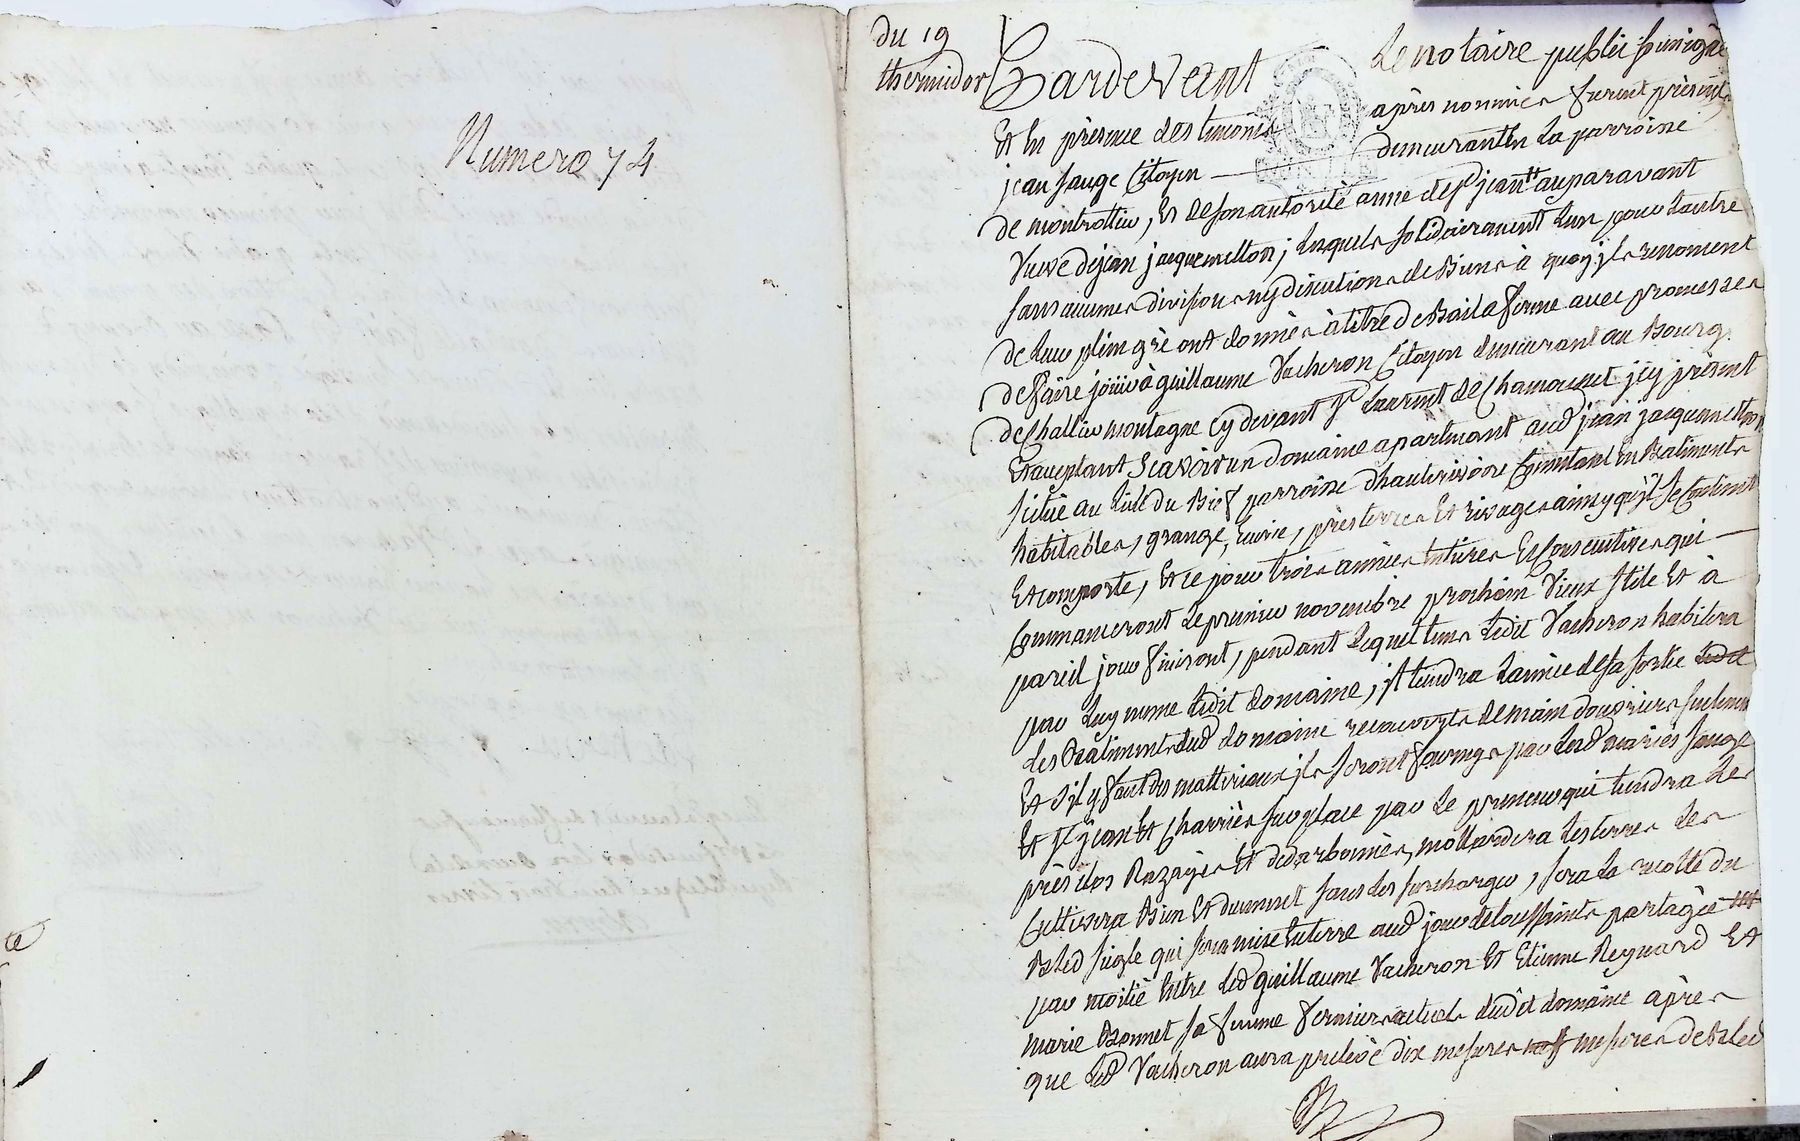 Numero 74
du 19
thermidor
Pardevant Le notaire public soussigné
Et En presence des temoins après nommés furent présents
jean sauge Citoyen demeurant En La parroisse
de montrottier, Et de son autorité anne de st jean auparavant
Vueve de jean jacquemetton, Lesquels solidairement Lun pour Lautre
sans aucunes divisions ny discutions de Biens à quoy jls renoncent
de Leur plein gré ont donnés à titre de Bail a ferme avec promesses
de faire jouir à guillaume Vacheron Citoyen demeurant au Bourg
de Challier montagne cy devant st Laurent de Chamousset jcy présent
Et acceptant Scavoir un domaine apartenant aud jean jacquemetton
scitué au Lieu du Bief parroisse dhauterivoire Consistant En Batiments
habitables, grange, Ecurie, prés terres Et rivages ainsy qu'jl se Contient
Et comporte, Et ce pour trois années Entieres Et Consecutives qui
Commanceront Le premier novembre prochain Vieux stile Et à
pareil jour finiront, pendant Lequel tems Ledit Vacheron habitera
par Luy meme Ledit domaine, jl tiendra Lannée de sa sortie Ledit
Les Batiments dud domaine recouverts de main douvriers seulement
Et s'jl y faut des mattériaux jls seront fournys par Lesd mariés sauge
Et st jean Et Charriés sur place par Le preneur qui tiendra Les
près clos Razagés Et dedarbonnés, mottardera Les terres Les
Cultivera Bien Et duement sans Les surcharger, sera La recolte du
Bled siegle qui sera mise En terre aud jour de toussaints partagée
par moitié Entre Led guillaume Vacheron Et Etienne Reynard Et
marie Bonnet sa femme fermiers actuels dudit domaine après
que Led Vacheron aura prelevé dix mesures mesures de Bled